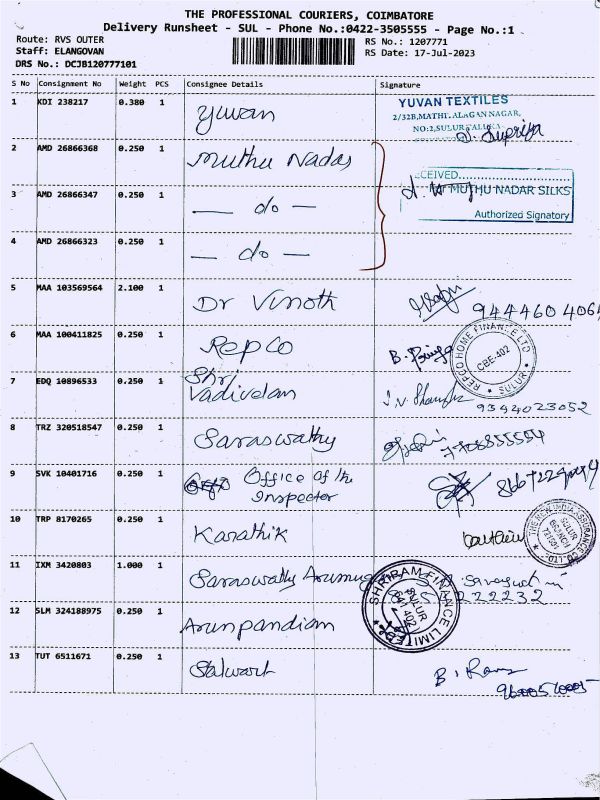 THE PROFESSIONAL COURIERS, COIMBATORE
Delivery Runsheet - SUL - Phone No.:0422-3505555 - Page No.:1
Route: RVS OUTER
RS No.: 1207771
Staff: ELANGOVAN
RS Date: 17-Jul-2023
DRS No.: DCJB120777101
S No Consignment No Weight PCS Consignee Details Signature
1 KDI 238217 0.380 1 Yuvan
YUVAN TEXTILES
2/32B, MATHIALAGAN NAGAR,
NO:2, SULUR TALUKA
D. Supriya
2 AMD 26866368 0.250 1 Muthu Nadar
3 AMD 26866347 0.250 1 — do —
CEIVED
MUTHU NADAR SILKS
Authorized Signatory
4 AMD 26866323 0.250 1 — do —
5 MAA 103569564 2.100 1 Dr Vinoth
6 MAA 100411825 0.250 1 Repco
REPCO HOME FINANCE LTD
CBE-402
SULUR
7 EDQ 10896533 0.250 1 Shri
Vadivelan
9394023052
8 TRZ 320518547 0.250 1 Saraswathy
9 SVK 10401716 0.250 1 Office of the
Inspector
10 TRP 8170265 0.250 1 Karathik
THE NEW INDIA ASSURANCE CO. LTD.
SULUR
BRANCH
11 IXM 3420803 1.000 1 Saraswathy Arumug
222232
SHRIRAM FINANCE LIMITED
SULUR
641 402
12 SLM 324188975 0.250 1 Arunpandian
13 TUT 6511671 0.250 1 Stalwart